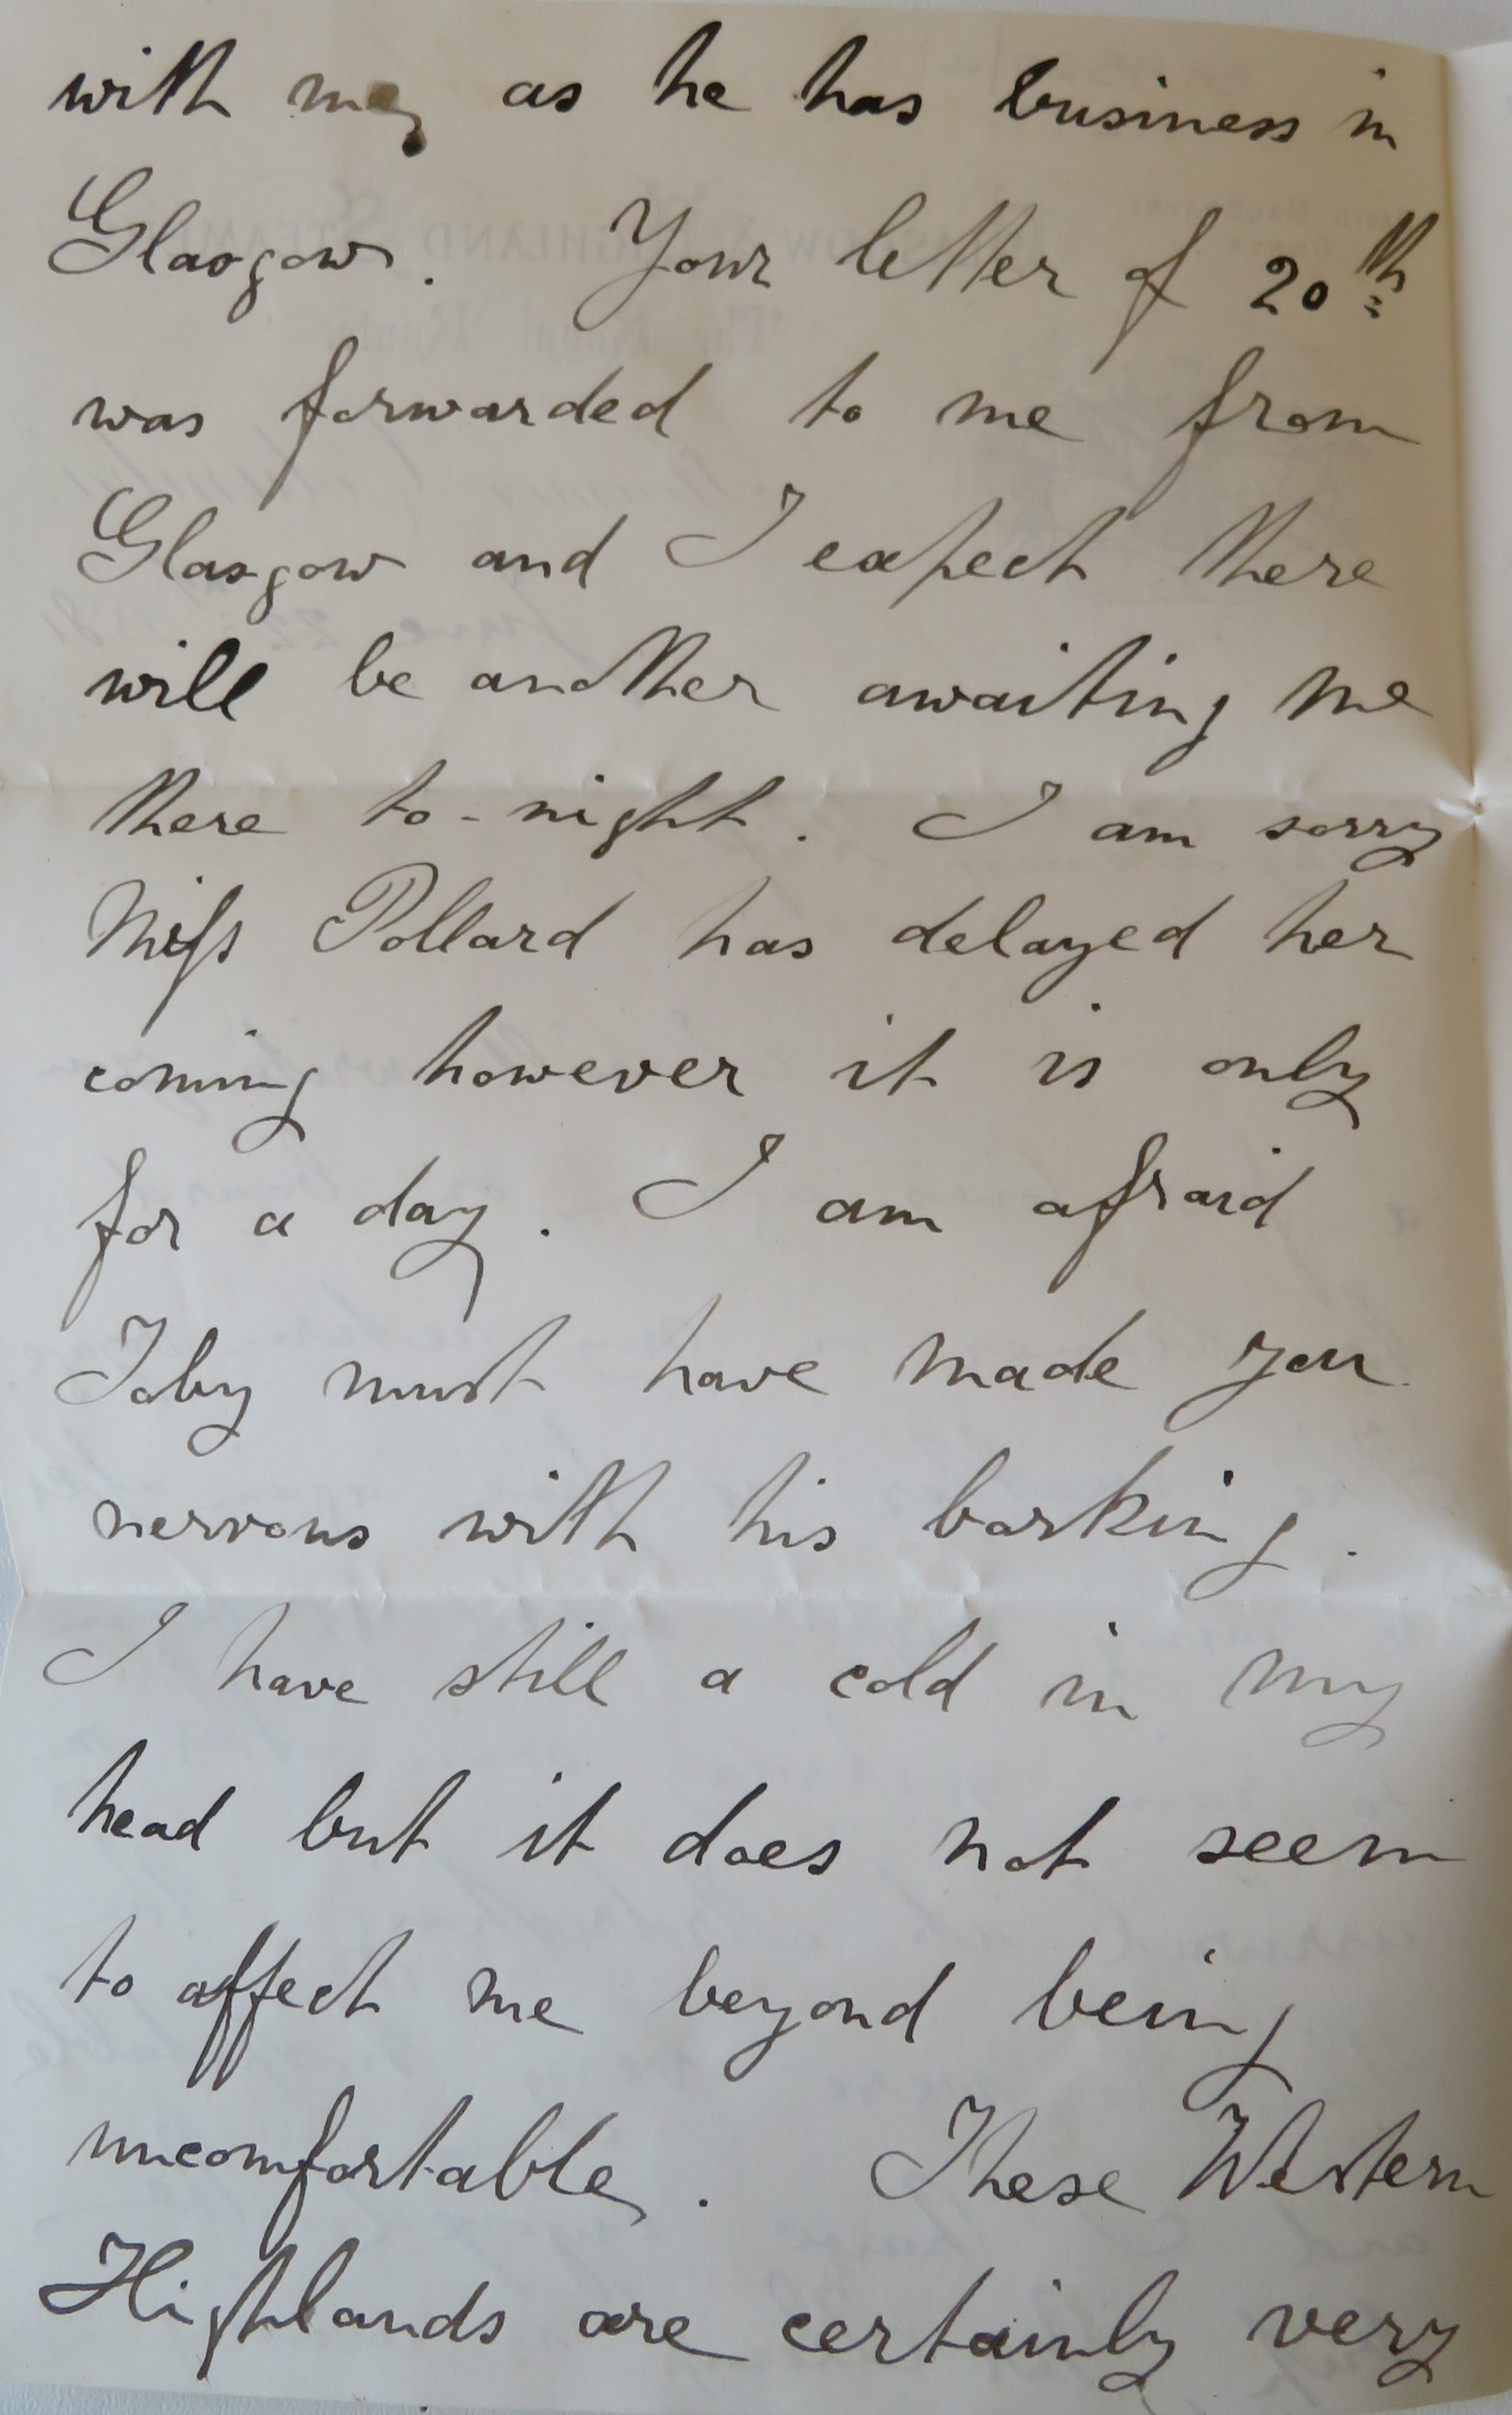 with me, as he has business in
Glasgow. Your letter of 20th
was forwarded to me from
Glasgow and I expect there
will be another awaiting me
there to-night. I am sorry
Miſs Pollard has delayed her
coming however it is only
for a day. I am afraid
Toby must have made you
nervous with his barking.
I have still a cold in my
head but it does not seem
to affect me beyond being
uncomfortable. These Western
Highlands are certainly very